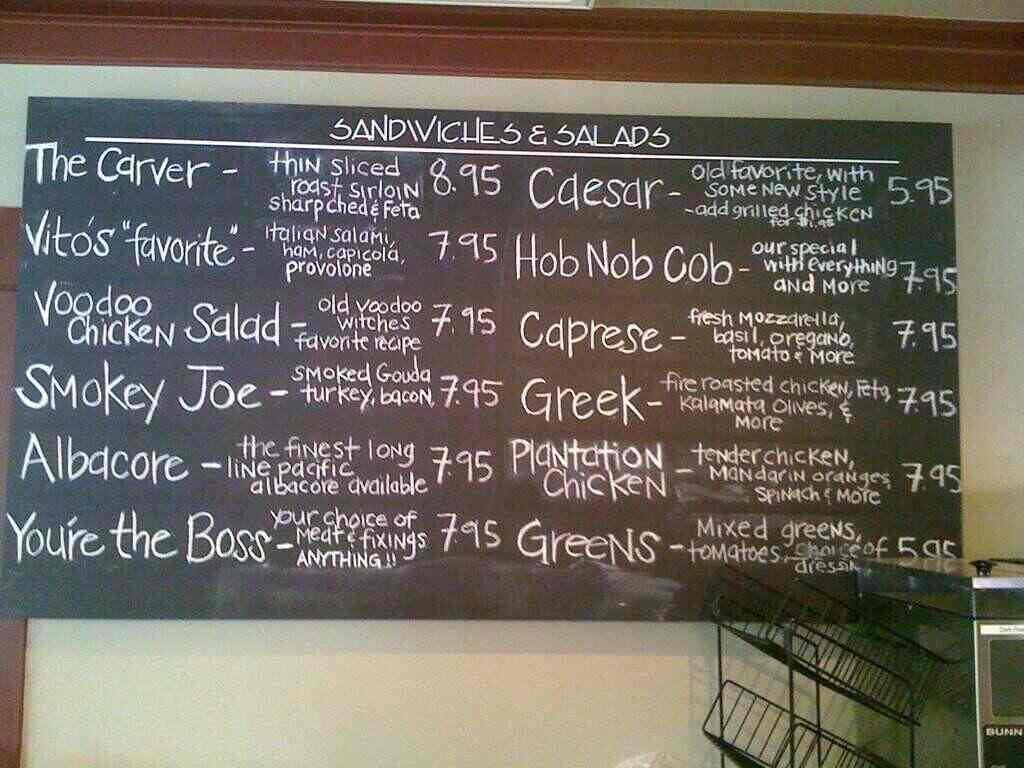 SANDWICHES & SALADS
The Carver - thin sliced 8.95
roast sirloin
sharp ched & feta
Vito's "favorite" - italian salami, 7.95
ham, capicola,
provolone
Voodoo
Chicken Salad - old voodoo 7.95
witches
favorite recipe
Smokey Joe - smoked Gouda 7.95
turkey, bacon,
Albacore - the finest long 7.95
line pacific
albacore available
You're the Boss - your choice of 7.95
meat & fixings
ANYTHING!!
Caesar - old favorite, with 5.95
some new style
- add grilled chicken
for $1.95
Hob Nob Cob - our special 7.95
with everything
and more
Caprese - fresh mozzarella, 7.95
basil, oregano,
tomato & more
Greek - fire roasted chicken, feta, 7.95
Kalamata olives, &
more
Plantation
Chicken - tender chicken, 7.95
mandarin oranges,
spinach & more
Greens - Mixed greens, 5.95
tomatoes, choice of
dressin
BUNN